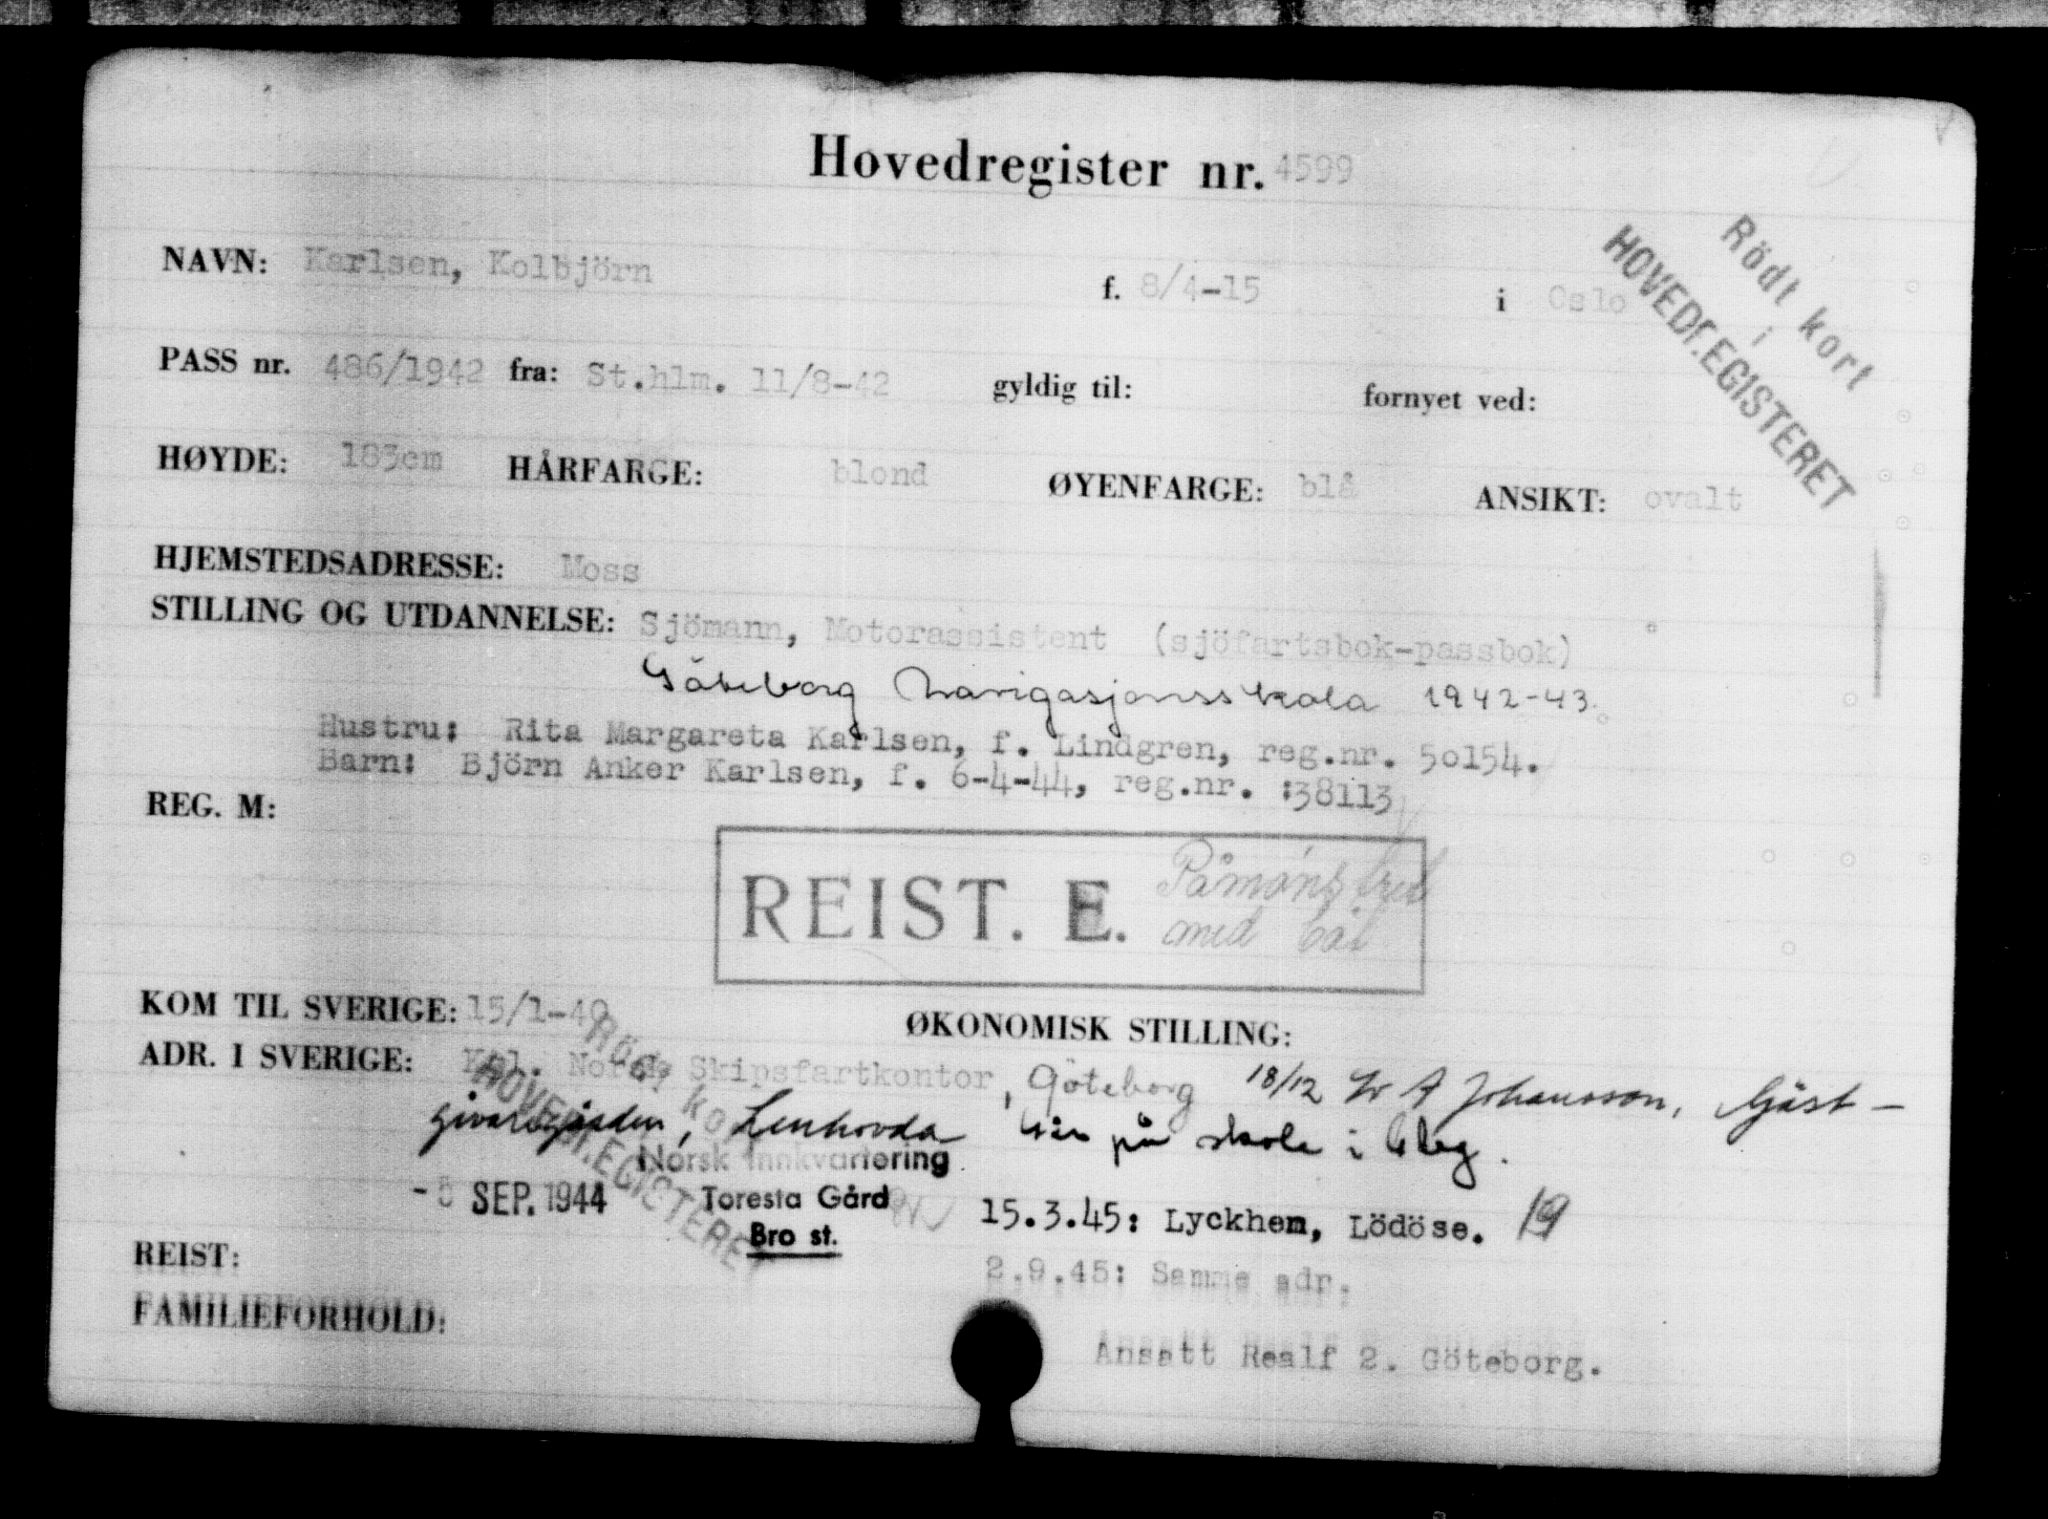 Hovedregister nr. 4599
Rödt kort
i
HOVEDr.EGISTERET
NAVN: Karlsen, Kolbjörn f. 8/4-15 i Oslo
PASS nr. 486/1942 fra: St.hlm. 11/8-42 gyldig til: fornyet ved:
HØYDE: 183cm HÅRFARGE: blond ØYENFARGE: blå ANSIKT: ovalt
HJEMSTEDSADRESSE: Moss
STILLING OG UTDANNELSE: Sjömann, Motorassistent (sjöfartsbok-passbok)
Göteborg Navigasjonsskola 1942-43.
Hustru: Rita Margareta Karlsen, f. Lindgren, reg.nr. 50154.
Barn: Björn Anker Karlsen, f. 6-4-44, reg.nr. :38113
REG. M:
REIST. E. Påmønstret
med båt
KOM TIL SVERIGE: 15/1-40 ØKONOMISK STILLING:
Rödt kort
HOVEDr.EGISTERET
ADR. I SVERIGE: Kgl. Norsk Skipsfartkontor, Göteborg 18/12 A Johansson, Gäst-
givaregården, Lenhovda på skole i Gbg.
Norsk Innkvartering
- 5 SEP. 1944 Toresta Gård 15.3.45: Lyckhem, Lödöse. 19
Bro st.
REIST: 2.9.45: Samme adr.
FAMILIEFORHOLD:
Ansatt Realf 2. Göteborg.